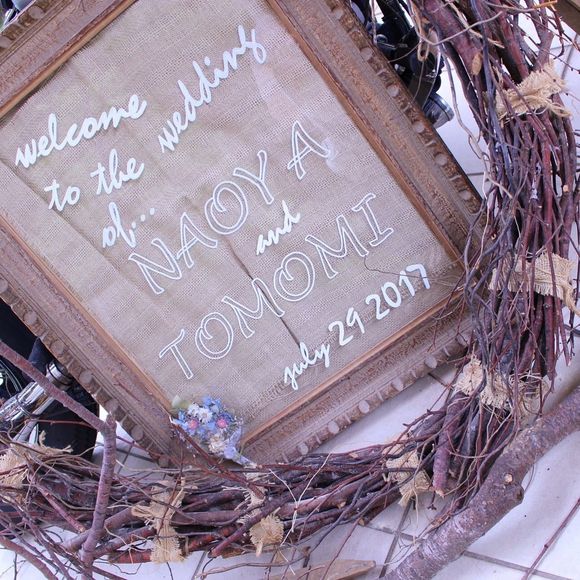 welcome
to the wedding
of...
NAOYA
and
TOMOMI
july 29 2017